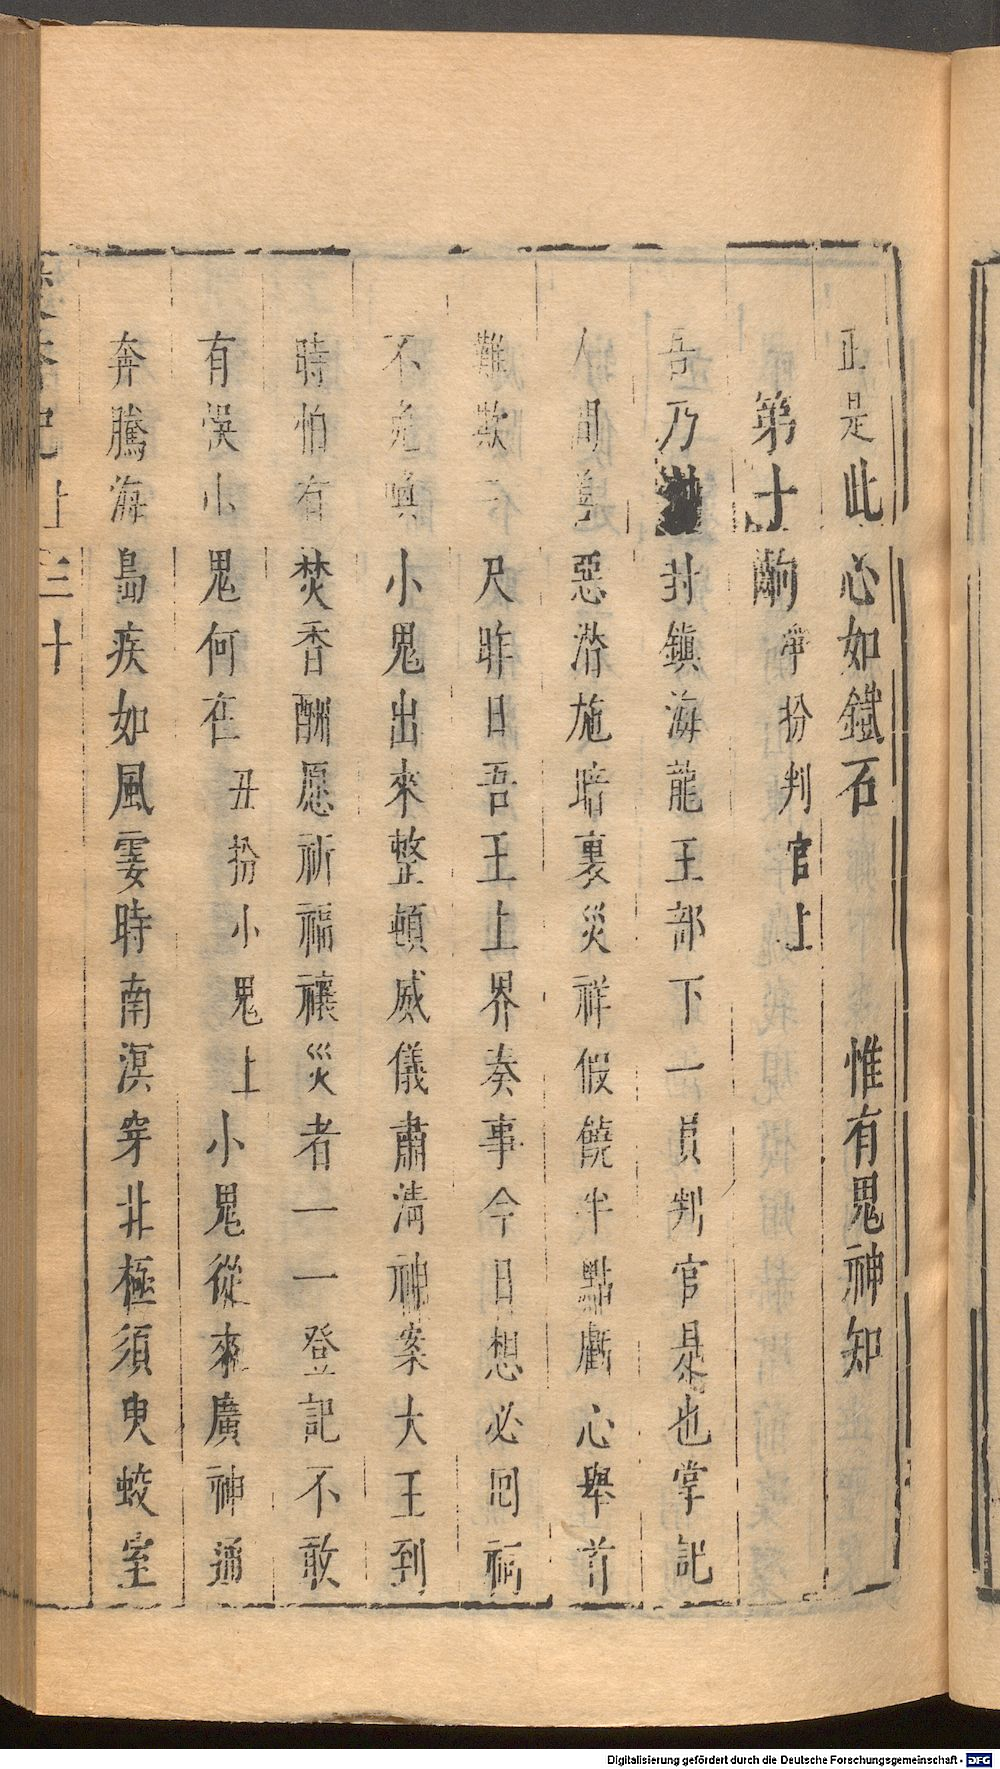 正是此心如鐵石　惟有鬼神知
第十齣　淨扮判官上
吾乃封鎮海龍王部下一員判官是也掌記
人間善惡潛施暗裏災祥假饒半點虧心舉首
難欺三尺昨日吾王上界奏事今日想必囘祠
不免喚小鬼出來整頓威儀肅清神案大王到
時怕有焚香酬愿祈福禳災者一一登記不敢
有悞小鬼何在　丑扮小鬼上　小鬼從來廣神通
奔騰海島疾如風霎時南溟穿北極須臾蛟室
記
三十
Digitalisierung gefördert durch die Deutsche Forschungsgemeinschaft - DFG